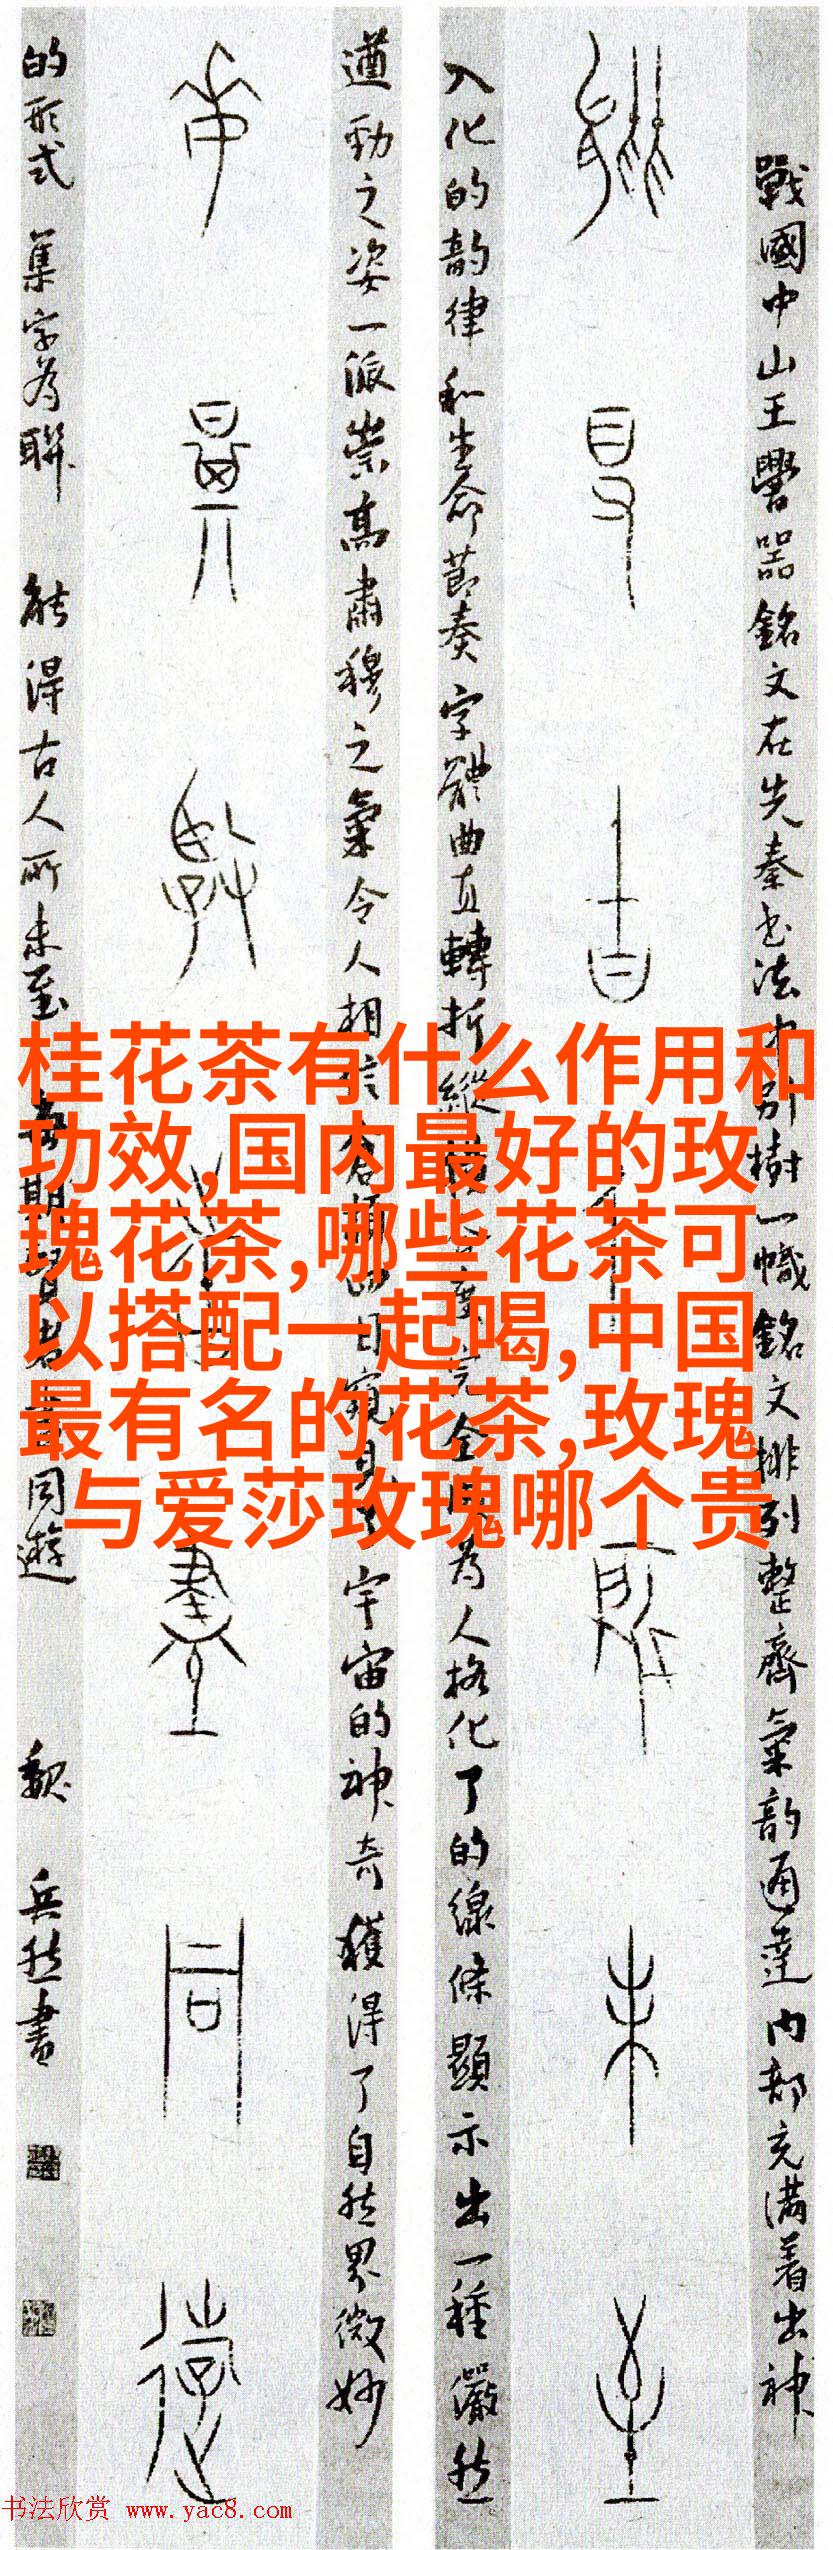 戰國中山王譽器銘文在先秦書法中別樹一幟銘文排列整齊氣韵通達内部充滿着出神
能得古人所未至
入化的韵律和生命節奏字體曲直轉折縱度完全為人格化了的線條顯示出一種嚴然
遒勁之姿一派崇高肅穆之氣令人相信倉頡四目窺見了宇宙的神奇獲得了自然界微妙
同遊
的形式集字為聯 能得古人所未至 期賢者同遊 魏兵然書
桂花茶有什么作用和
功效,国内最好的玫
瑰花茶,哪些花茶可
以搭配一起喝,中国
最有名的花茶,玫瑰
与爱莎玫瑰哪个贵
书法欣赏 www.yac8.com